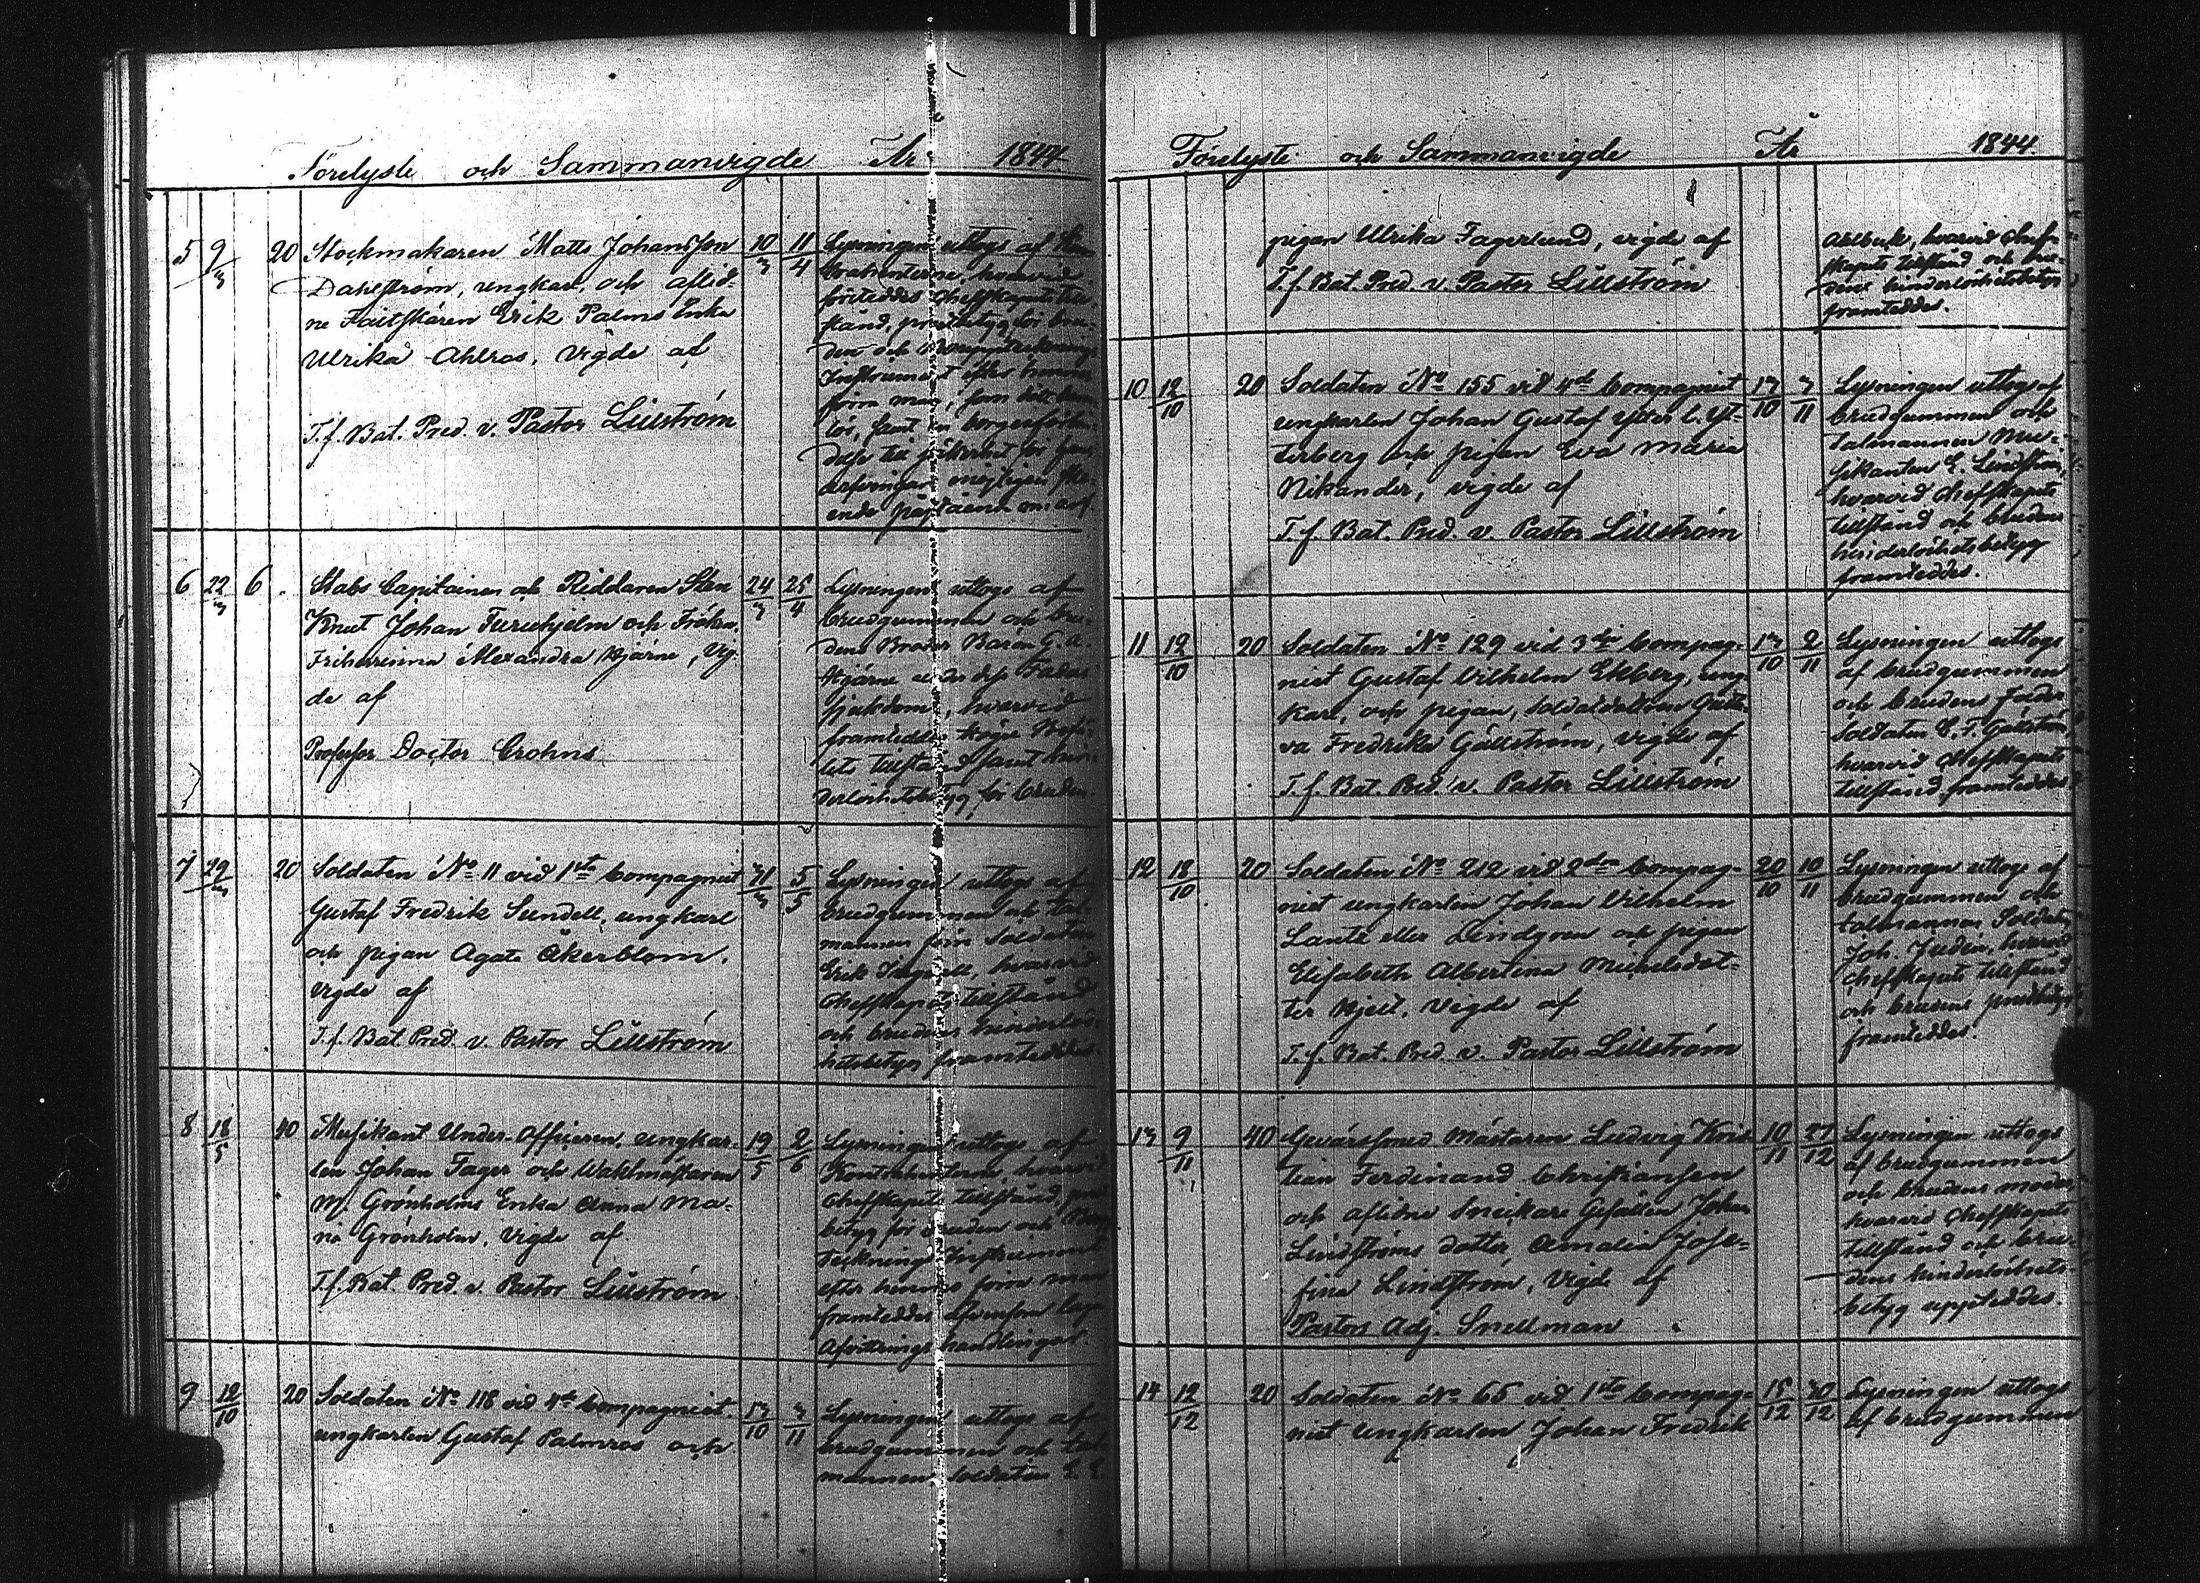 Förelyste och Sammanvigde År 1844
5 9/3 20 Stockmakaren Matts Johansson 10/3 11/4
Dahlström, ungkarl, och aflid-
ne Fältskären Erik Palms Enka
Ulrika Ahlros, vigde af
T.f. Bat. Pred. v. Pastor Lillström
Lysningen uttogs af Kon-
trahenterne, hvarvid
företeddes Chefskapets till-
stånd, prestbetyg för bru-
den och
Instrument efter hennes
förra man, som
lös, samt en borgesförbin-
delse till säkerhet för
arfvingars möjligen ske-
ende påstående om arf.
6 22/3 6 . Stabs Capitainen och Riddaren Sten 24/3 25/4
Knut Johan Furuhjelm och Fröken,
Friherrinna Alexandra Hjärne, vig-
de af
Professor Doctor Crohns
Lysningen uttogs af
brudgummen och bru-
dens Broder Baron G. A.
Hjärne under dess Faders
sjukdom, hvarvid
framteddes högre Befä-
lets tillstånd samt hin-
derlöshetsbetyg för bruden.
7 29/3 20 Soldaten No 11 vid 1sta Compagniet 31/3 5/5
Gustaf Fredrik Sundell, ungkarl
och pigan Agata Åkerblom,
vigde af
T.f. Bat. Pred. v. Pastor Lillström
Lysningen uttogs af
brudgummen och tal-
mannen förre Soldaten
Erik hvarvid
Chefskapets tillstånd
och brudens hinderlös-
hetsbetyg framteddes.
8 18/5 40 Musikant Under-Officeren, ungkar- 19/5 2/6
len Johan Fager och Waktmästaren
M. Grönholms Enka Anna Ma-
ria Grönholm, vigde af
T.f. Bat. Pred. v. Pastor Lillström
Lysningen uttogs af
Kontrahenterna, hvarvid
Chefskapets tillstånd, prest-
betyg för bruden och Boupp-
teckning Instrument
efter hennes förra man
framteddes äfvensom laga
Afvittrings handlingar.
9 12/10 20 Soldaten No 118 vid 4de Compagniet 13/10 3/11
ungkarlen Gustaf Palmros och
Lysningen uttogs af
brudgummen och tal-
mannen Soldaten E. E.
Förelyste och Sammanvigde År 1844
pigan Ulrika Fagerlund, vigde af
T.f. Bat. Pred. v. Pastor Lillström
Ahlbeck, hvarvid Chef-
skapets tillstånd och bru-
dens hinderlöshetsbetyg
framteddes.
10 12/10 20 Soldaten No 155 vid 4de Compagniet 13/10 3/11
ungkarlen Johan Gustaf Ytter l. Yt-
terberg och pigan Eva Maria
Nikander, vigde af
T.f. Bat. Pred. v. Pastor Lillström
Lysningen uttogs af
brudgummen och
talmannen Mu-
sikanten E. Lindström,
hvarvid Chefskapets
tillstånd och brudens
hinderlöshetsbetyg
framteddes.
11 12/10 20 Soldaten No 129 vid 3dje Compag- 13/10 2/11
niet Gustaf Vilhelm Ekberg, ung-
karl, och pigan, soldatdottren Gusta-
va Fredrika Gällström, vigde af
T.f. Bat. Pred. v. Pastor Lillström
Lysningen uttogs
af brudgummen
och brudens fader
Soldaten C. F. Gällström
hvarvid Chefskapets
tillstånd framteddes
12 18/10 20 Soldaten No 212 vid 2dra Compag- 20/10 10/11
niet ungkarlen Johan Vilhelm
Lante eller Lindgren och pigan
Elisabeth Albertina Michelsdot-
ter Hjelt, vigde af
T.f. Bat. Pred. v. Pastor Lillström
Lysningen uttogs af
brudgummen och
talmannen Soldaten
Joh. Judin, hvarvid
Chefskapets tillstånd
och brudens prestbetyg
framteddes.
13 9/11 40 Gevärssmed Mästaren Ludvig Kris- 10/11 27/12
tian Ferdinand Christiansen
och aflidne Snickare Gesällen Johan
Lindströms dotter, Amalia Jose-
fina Lindström, vigde af
Pastors Adj. Snellman
Lysningen uttogs
af brudgummen
och brudens moder,
hvarvid Chefskapets
tillstånd och bru-
dens hinderlöshets-
betyg uppteddes.
14 12/12 20 Soldaten No 65 vid 1sta Compag- 15/12 30/12
niet ungkarlen Johan Fredrik
Lysningen uttogs
af brudgummen